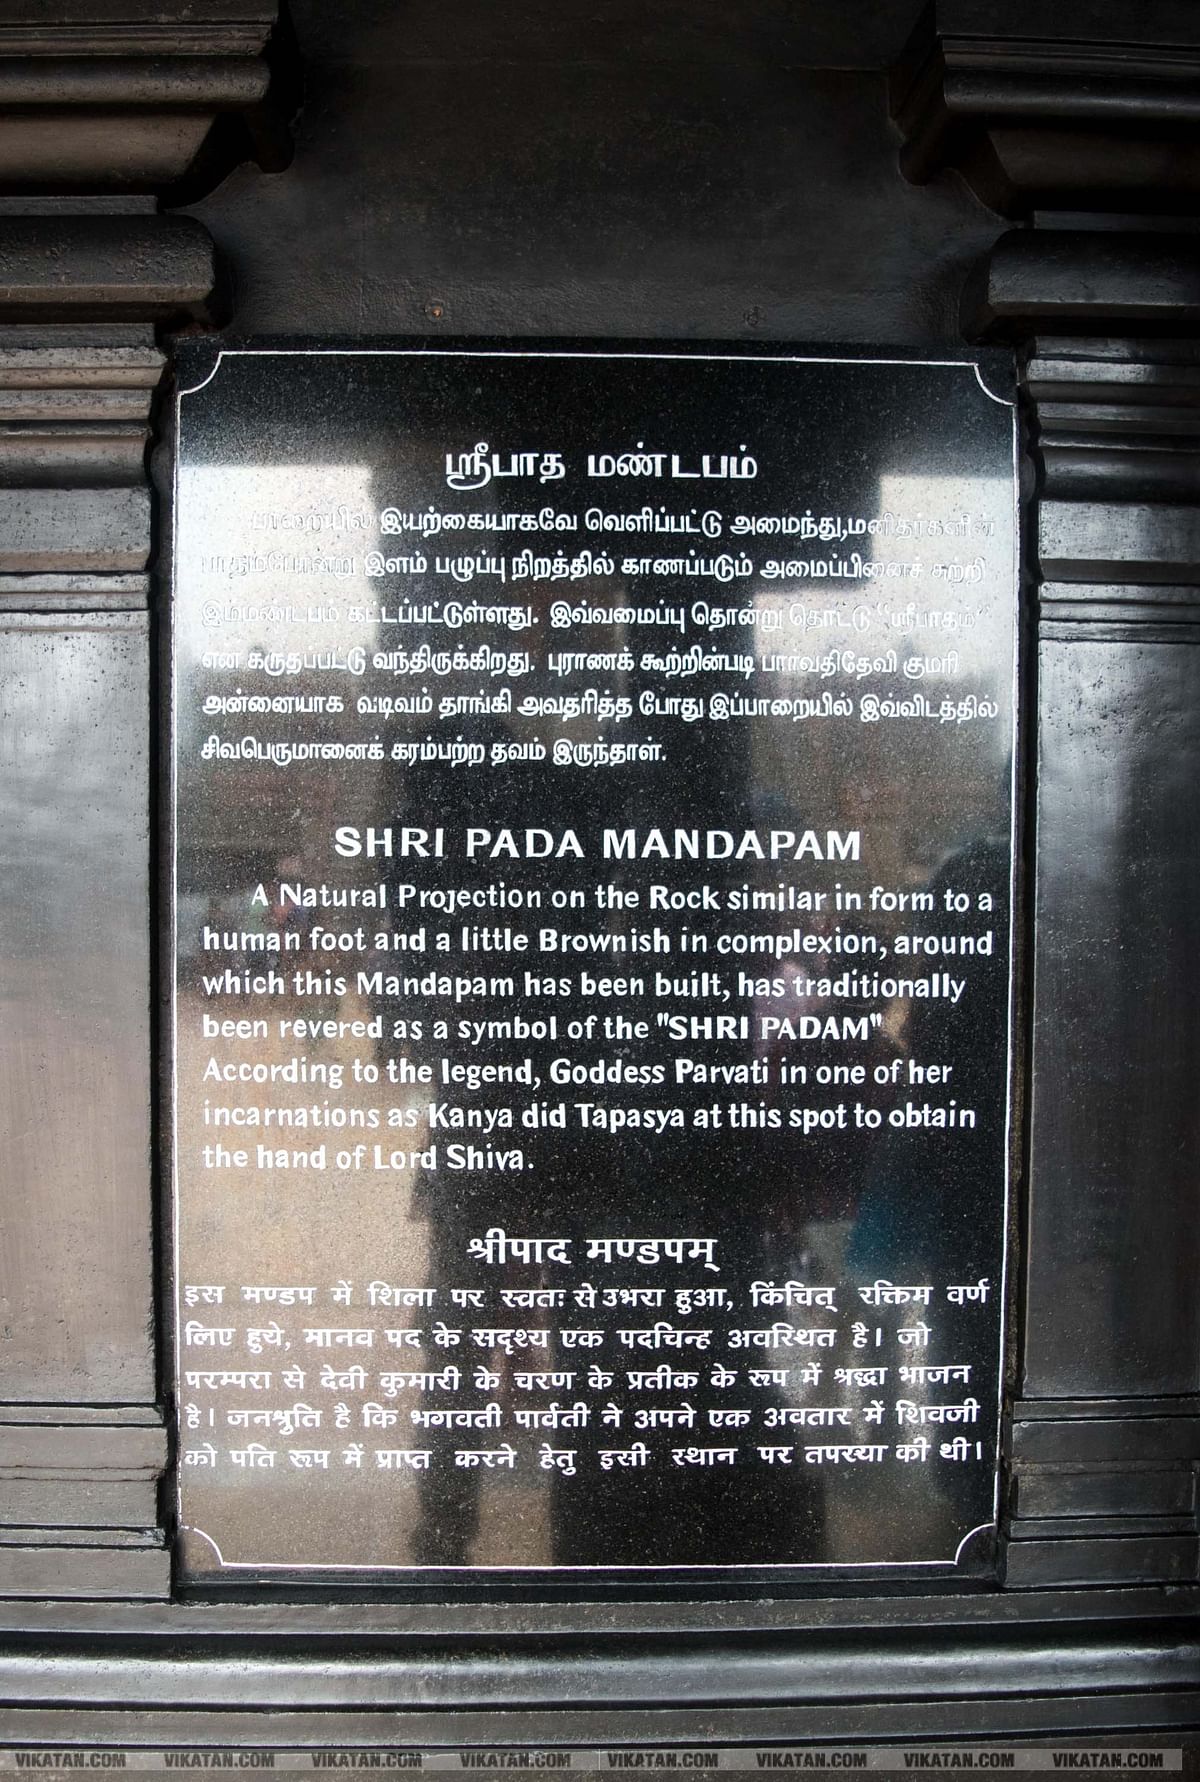 ஸ்ரீபாத மண்டபம்
பாறையில் இயற்கையாகவே வெளிப்பட்டு அமைந்து,மனிதர்களின்
பாதம்போன்று இளம் பழுப்பு நிறத்தில் காணப்படும் அமைப்பினைச் சுற்றி
இம்மண்டபம் கட்டப்பட்டுள்ளது. இவ்வமைப்பு தொன்று தொட்டு "ஸ்ரீபாதம்"
என கருதப்பட்டு வந்திருக்கிறது. புராணக் கூற்றின்படி பார்வதிதேவி குமரி
அன்னையாக வடிவம் தாங்கி அவதரித்த போது இப்பாறையில் இவ்விடத்தில்
சிவபெருமானைக் கரம்பற்ற தவம் இருந்தாள்.
SHRI PADA MANDAPAM
A Natural Projection on the Rock similar in form to a
human foot and a little Brownish in complexion, around
which this Mandapam has been built, has traditionally
been revered as a symbol of the "SHRI PADAM"
According to the legend, Goddess Parvati in one of her
incarnations as Kanya did Tapasya at this spot to obtain
the hand of Lord Shiva.
श्रीपाद मण्डपम्
इस मण्डप में शिला पर स्वतः से उभरा हुआ, किंचित् रक्तिम वर्ण
लिए हुये, मानव पद के सदृश्य एक पदचिन्ह अवस्थित है। जो
परम्परा से देवी कुमारी के चरण के प्रतीक के रूप में श्रद्धा भाजन
है। जनश्रुति है कि भगवती पार्वती ने अपने एक अवतार में शिवजी
को पति रूप में प्राप्त करने हेतु इसी स्थान पर तपस्या की थी।
VIKATAN.COM VIKATAN.COM VIKATAN.COM VIKATAN.COM VIKATAN.COM VIKATAN.COM VIKATAN.COM VIKATAN.COM